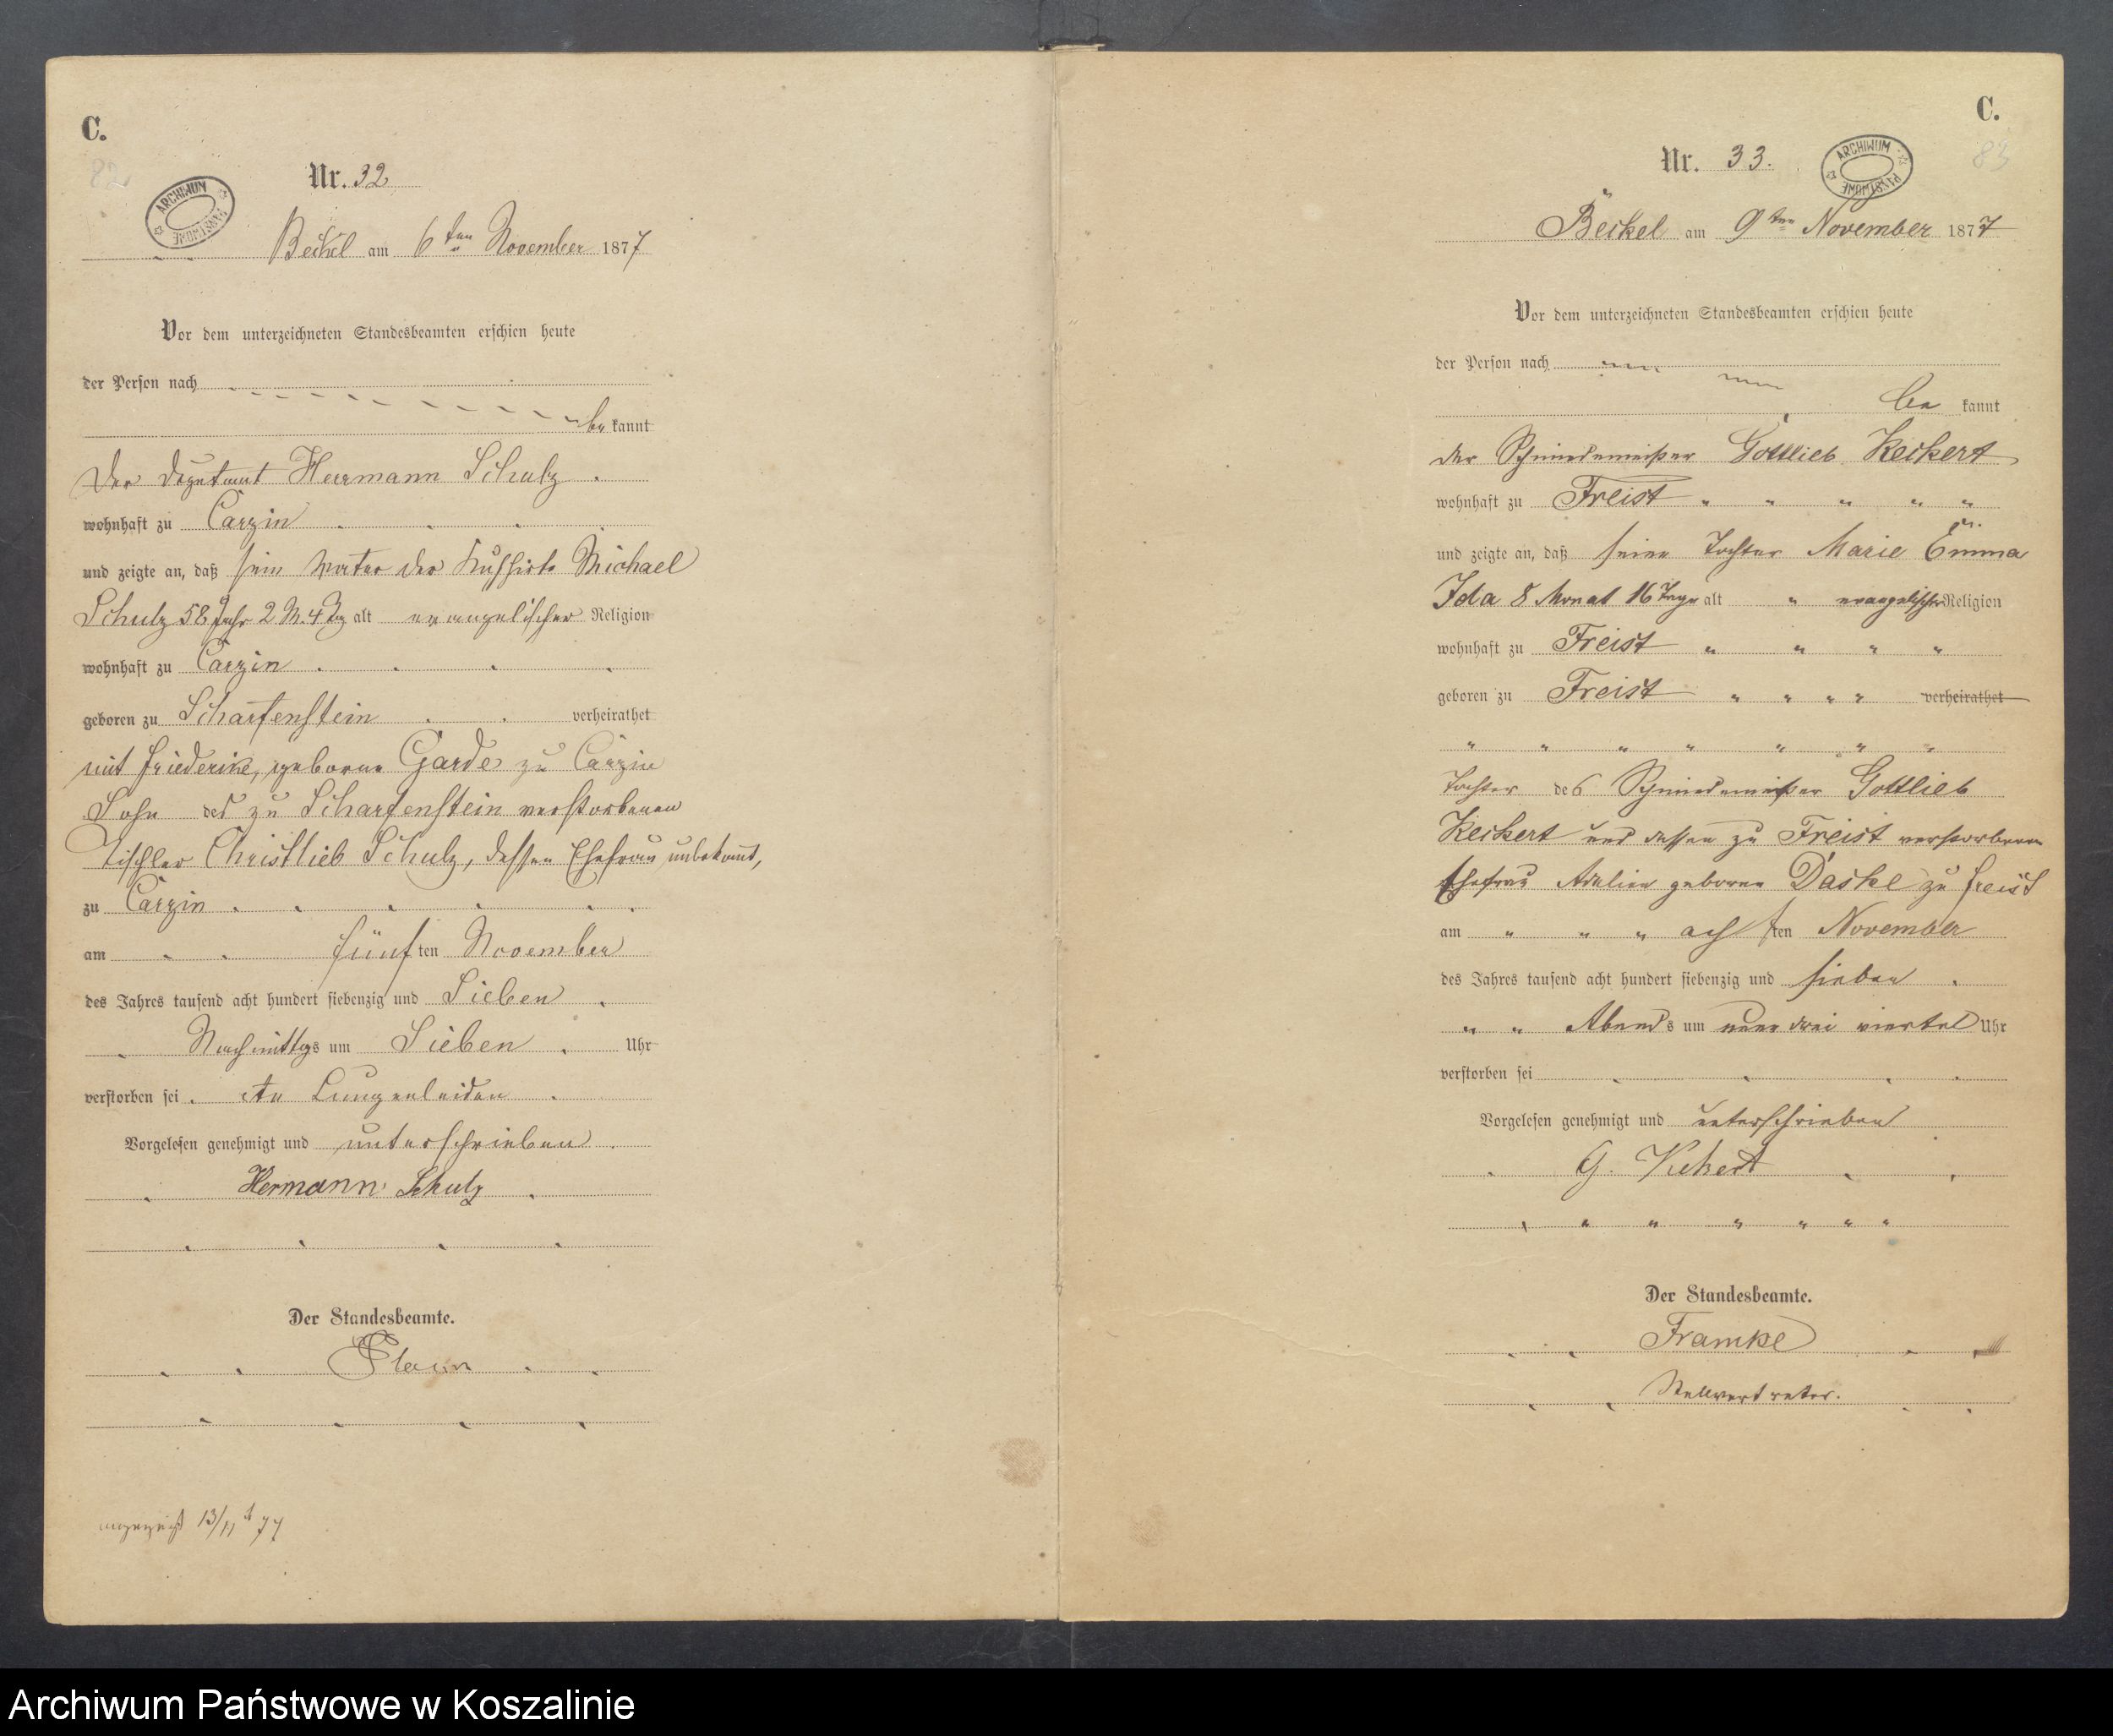 C.
82
Nr. 32
ARCHIWUM PAŃSTWOWE
Beckel am 6ten November 1877
Vor dem unterzeichneten Standesbeamten erschien heute
der Person nach
be kannt
Der Deputant Herrmann Schulz
wohnhaft zu Carzin
und zeigte an, daß sein Vater der Kuhhirte Michael
Schulz 58 Jahr 2 M. 4 Tg alt evangelischer Religion
wohnhaft zu Carzin
geboren zu Scharfenstein verheirathet
mit Friederike, geborne Garde zu Carzin
Sohn des zu Scharfenstein verstorbenen
Tischler Christlieb Schulz, dessen Ehefrau unbekannt,
zu Carzin
am fünf ten November
des Jahres tausend acht hundert siebenzig und Sieben
Nachmittgs um Sieben Uhr
verstorben sei An Lungenleiden
Vorgelesen genehmigt und unterschrieben
Hermann Schulz
Der Standesbeamte.
angezeigt 13/11 77
C.
83
Nr. 33.
ARCHIWUM PAŃSTWOWE
Beckel am 9ten November 1877
Vor dem unterzeichneten Standesbeamten erschien heute
der Person nach
be kannt
der Schmiedemeister Gottlieb Keckert
wohnhaft zu Freist
und zeigte an, daß seine Tochter Marie Emma
Ida 8 Monat 16 Tage alt evangelischer Religion
wohnhaft zu Freist
geboren zu Freist verheirathet
Tochter des Schmiedemeister Gottlieb
Keckert und dessen zu Freist verstorbenen
Ehefrau Adeline geborne Daske zu Freist
am ach ten November
des Jahres tausend acht hundert siebenzig und sieben
Abends um neun drei viertel Uhr
verstorben sei
Vorgelesen genehmigt und unterschrieben
G. Kekert
Der Standesbeamte.
Framke
Stellvertreter.
Archiwum Państwowe w Koszalinie